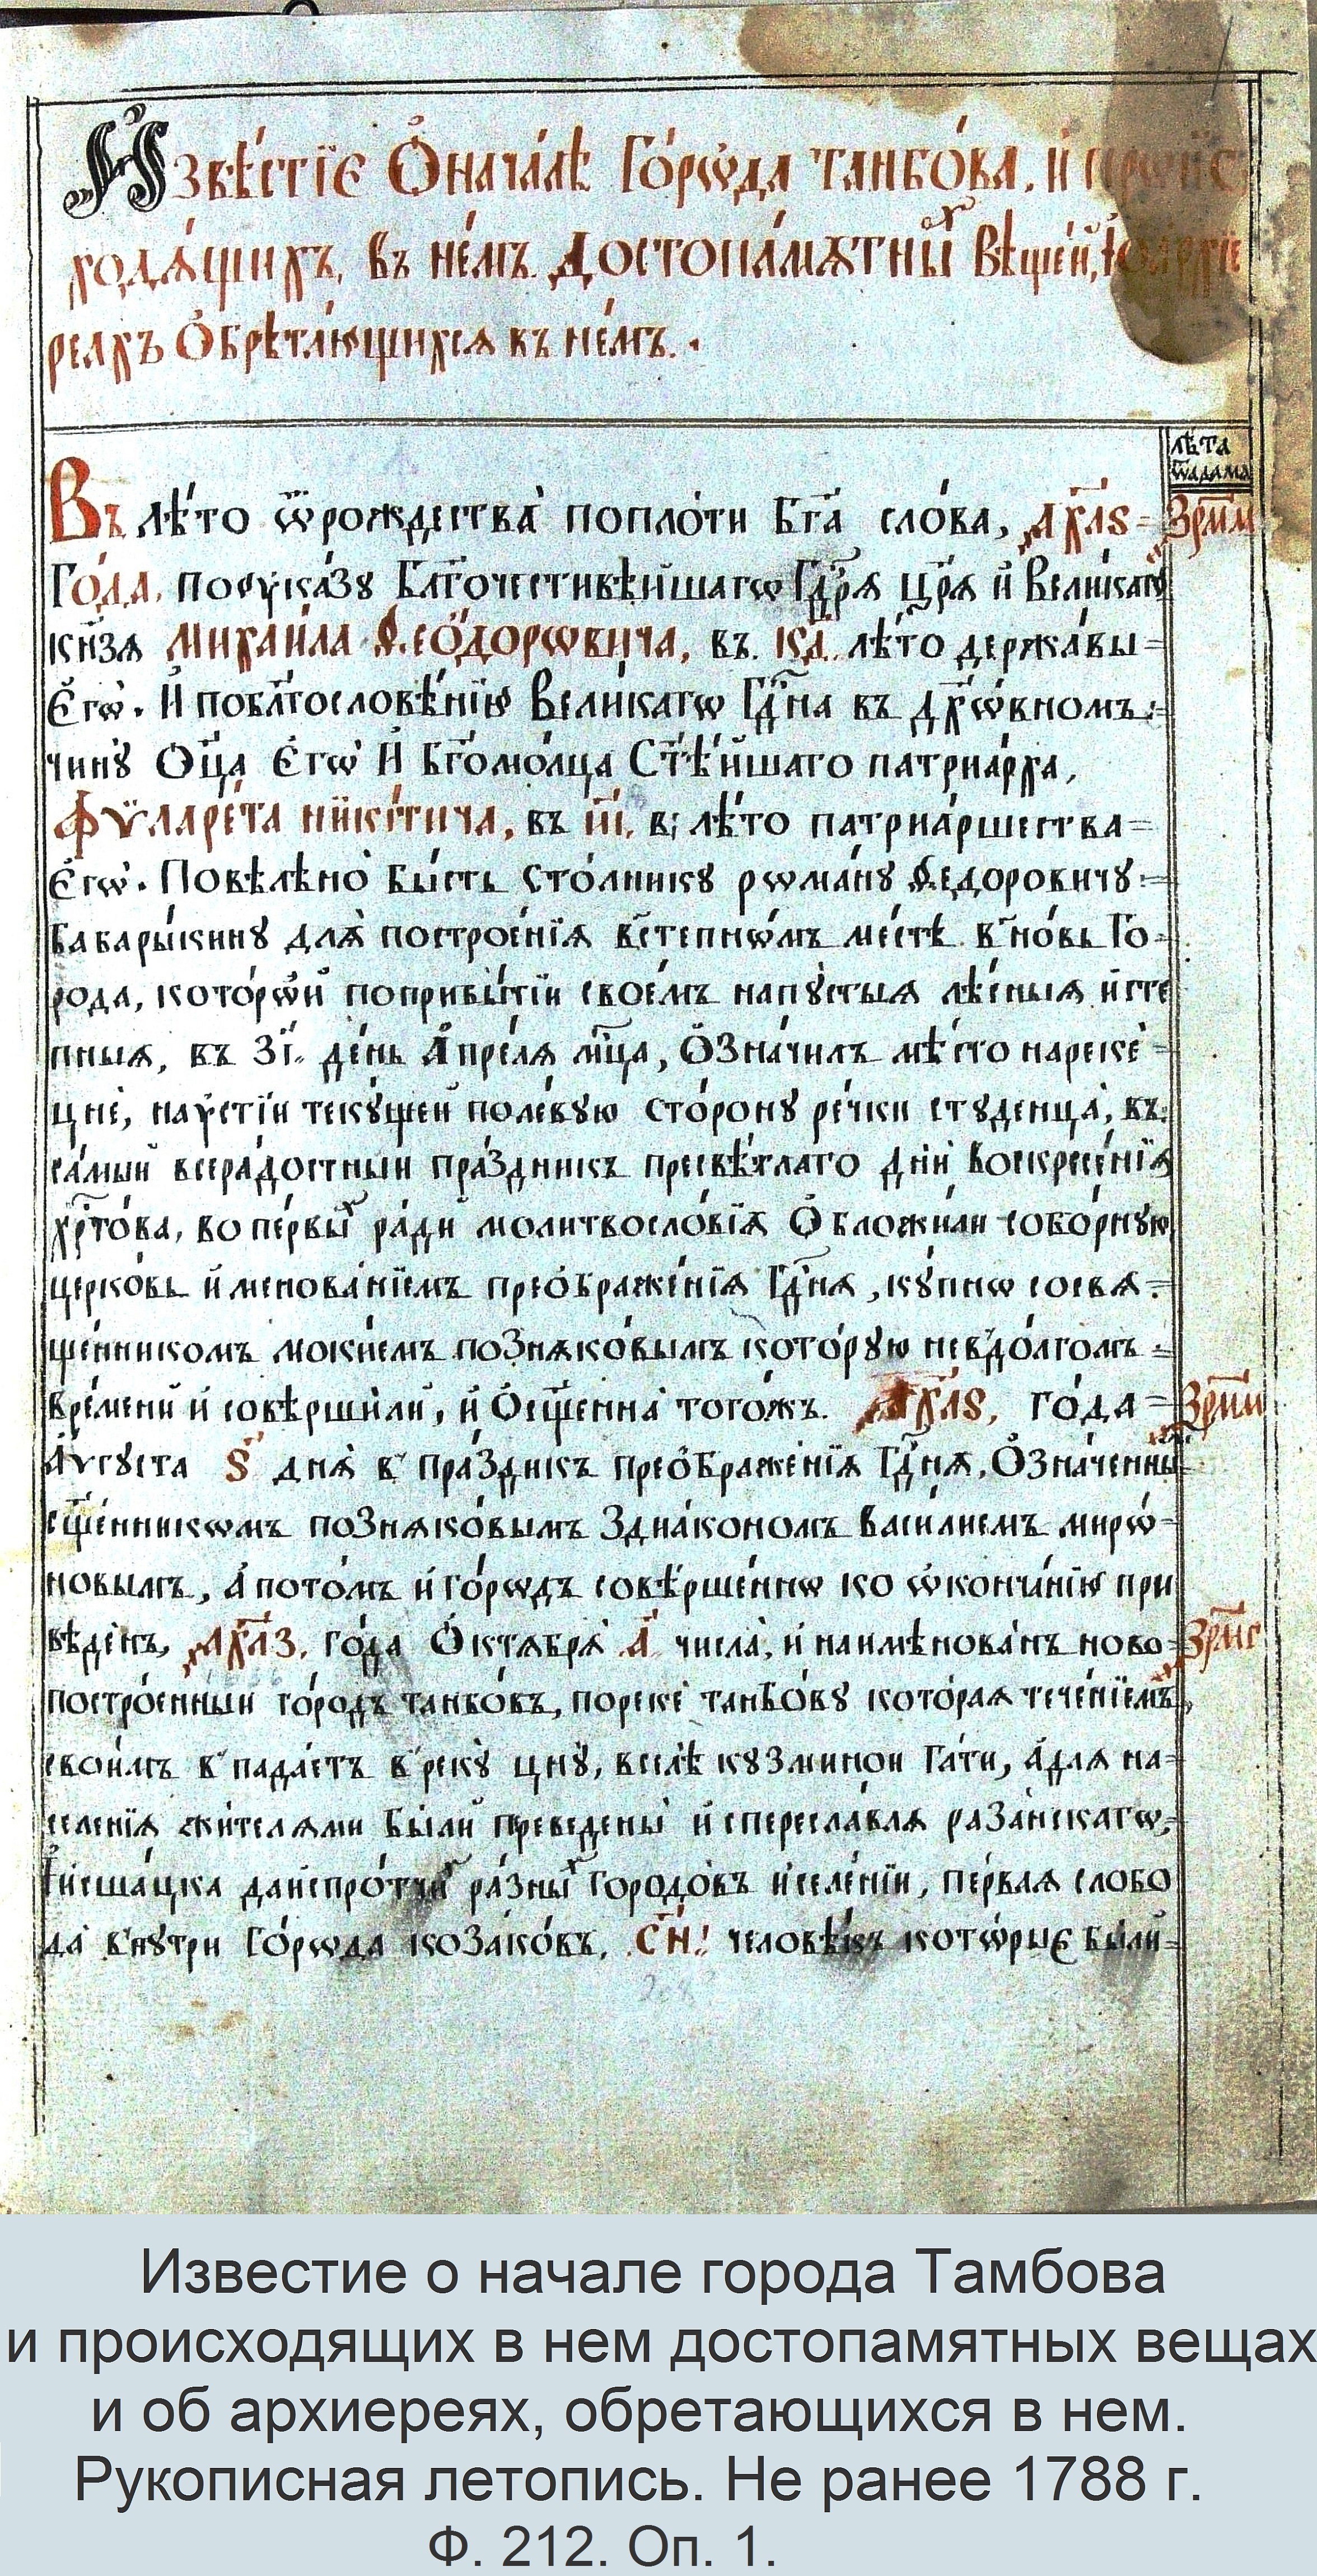 Извѣстїе О началѣ Горѡда танбова, и проис
ходящихъ, въ немъ достопамѧтны х вѣщей, 
реахъ Обрѣтающихсѧ въ немъ.
лѣта
ѿадама
Въ лѣто ѿрождества поплоти Бг҃а слова, ҂ахл҃ѕ = ҂зрм҃м
Года, поуказу Бл҃гочестивѣйшагѡ Гд҇рѧ цр҃ѧ и Великагѡ
кн҃зѧ Михаила Ѳеодорѡвича, въ. кд. лѣто державы =
Егѡ. И побл҃гословѣнїю Великагѡ Гд҇на въ дх҃ѡвномъ =
чину Оц҃а Егѡ И Бг҃омолца Ст҃ѣйшаго патриарха,
Фѵларета никитича, въ і҃і. в; лѣто патриаршества =
Егѡ. Повѣлѣно бысть столнику рѡману Ѳедоровичу =
Бабарыкину длѧ построенїѧ в степнѡмъ местѣ в новь Го =
рода, которѡй поприбытїи своемъ напустыѧ лѣсныѧ и сте
пныѧ, въ з҃і. день Апрелѧ мц҃а, Означилъ мѣсто нареке =
цне, наустїи текущей полевую сторону речки студенца, въ
самый всерадостный праздникъ пресвѣтлаго дни воскресенїѧ
хр҇това, во первы х ради молитвословїѧ Обложили соборную
церковь именованїемъ преображенїѧ Гд҇нѧ, купнѡ сосвѧ =
щенникомъ мокиемъ познѧковымъ которую невдолгомъ =
времени и совѣршили, и Ос҃щенна тогожъ. ҂ахл҃ѕ, года = ҂зрм҃м
Аѵгуста ѕ҃ днѧ в праздникъ преображенїѧ Гд҇нѧ, Означенны м
с҃щенникѡмъ познѧковымъ здиакономъ василиемъ мирѡ =
новымъ, А потомъ и горѡдъ совѣршеннѡ ко ѡкончанїю при
вѣденъ, ҂ахл҃з. года Октѧбрѧ а҃. числа, и наимѣнованъ ново = ҂зрм҃с
построенный городъ танбовъ, пореке танбову котораѧ теченїемъ
своимъ в падаетъ в реку цну, вселѣ кузминой гати, а длѧ на =
селенїѧ жителѧми были преведены и спереславлѧ разанскагѡ,
Ѝсшацка даиспротчи х разны х городовъ и селении, перваѧ слобо
да внутри горѡда козаковъ, с҃н. человѣкъ котѡрые были =
Известие о начале города Тамбова
и происходящих в нем достопамятных вещах
и об архиереях, обретающихся в нем.
Рукописная летопись. Не ранее 1788 г.
Ф. 212. Оп. 1.